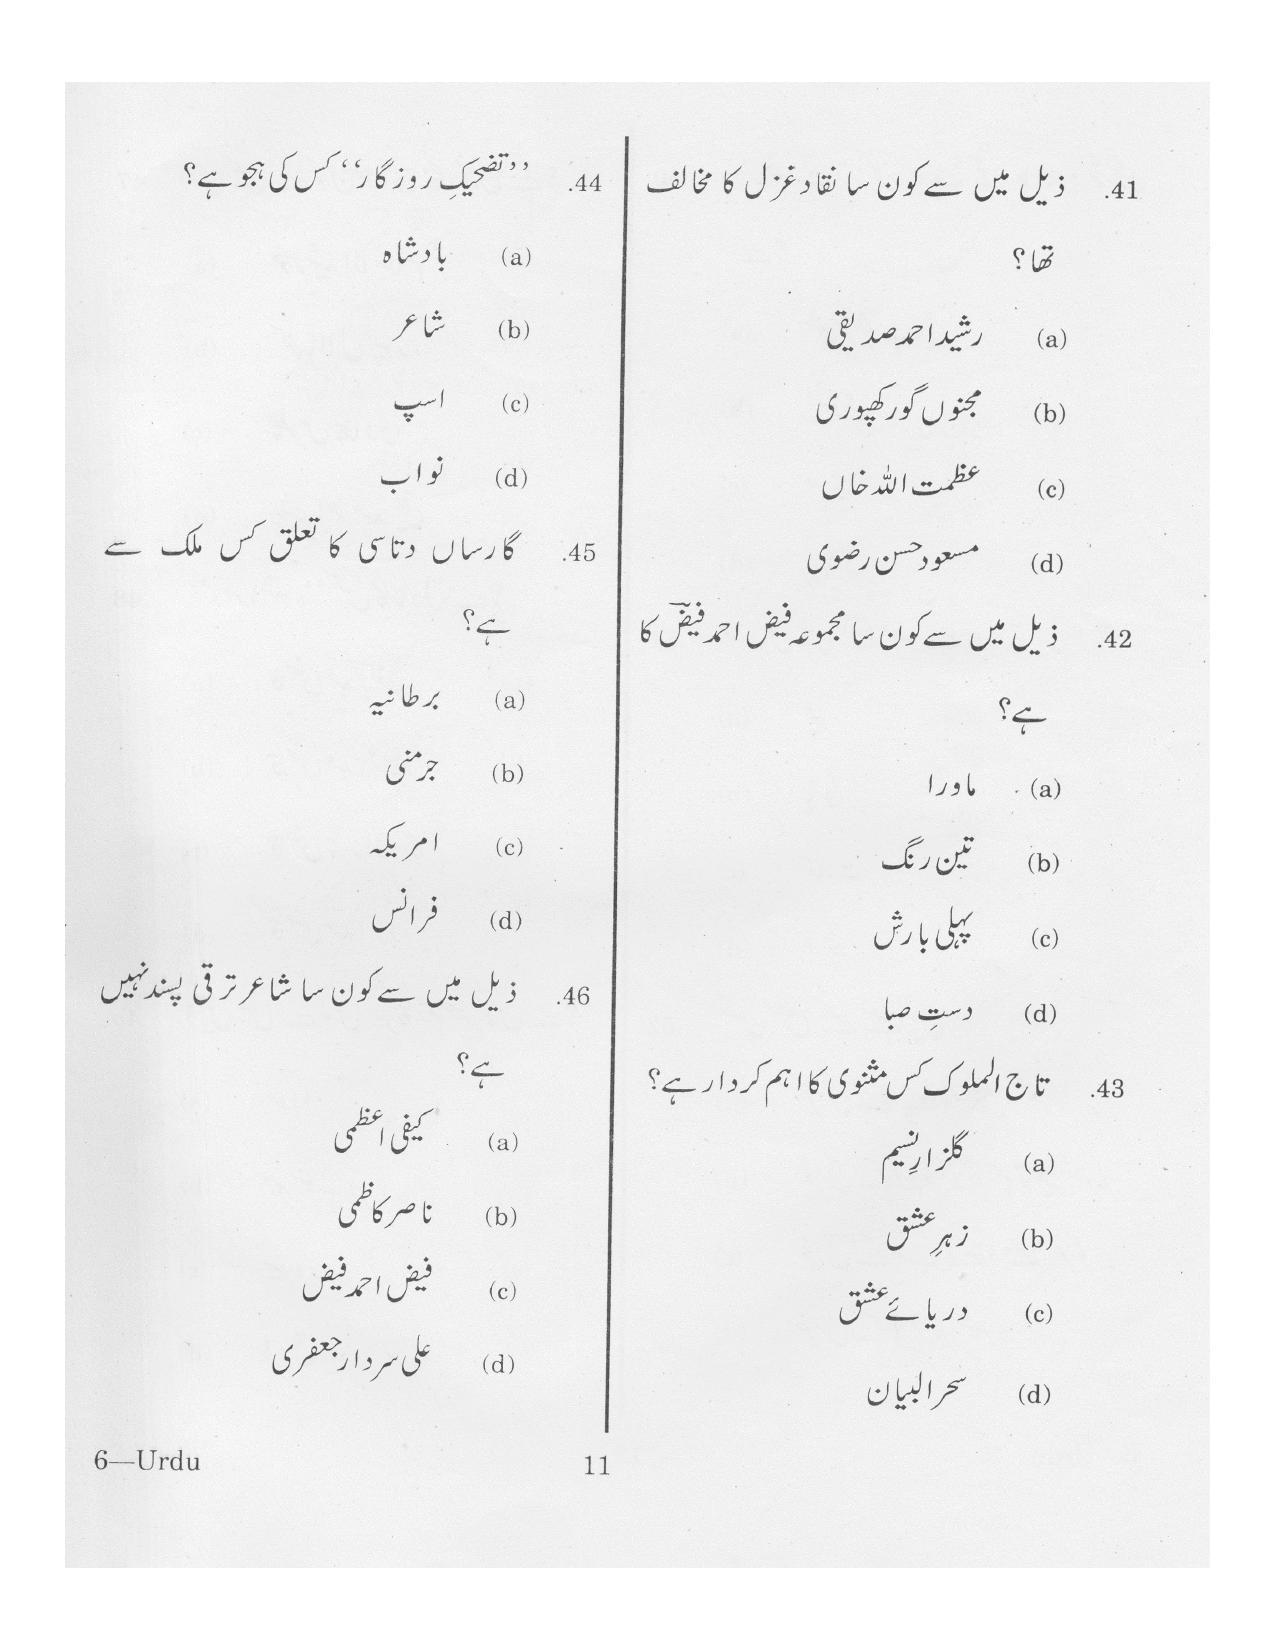 41. ذیل میں سے کون سا نقاد غزل کا مخالف
تھا؟
(a) رشید احمد صدیقی
(b) مجنوں گورکھپوری
(c) عظمت اللہ خاں
(d) مسعود حسن رضوی
42. ذیل میں سے کون سا مجموعہ فیض احمد فیضؔ کا
ہے؟
(a) ماورا
(b) تین رنگ
(c) پہلی بارش
(d) دستِ صبا
43. تاج الملوک کس مثنوی کا اہم کردار ہے؟
(a) گلزارِ نسیم
(b) زہرِ عشق
(c) دریائے عشق
(d) سحرالبیان
44. ’’تضحیکِ روزگار‘‘ کس کی ہجو ہے؟
(a) بادشاہ
(b) شاعر
(c) اسپ
(d) نواب
45. گارساں دتاسی کا تعلق کس ملک سے
ہے؟
(a) برطانیہ
(b) جرمنی
(c) امریکہ
(d) فرانس
46. ذیل میں سے کون سا شاعر ترقی پسند نہیں
ہے؟
(a) کیفی اعظمی
(b) ناصر کاظمی
(c) فیض احمد فیض
(d) علی سردار جعفری
6—Urdu
11